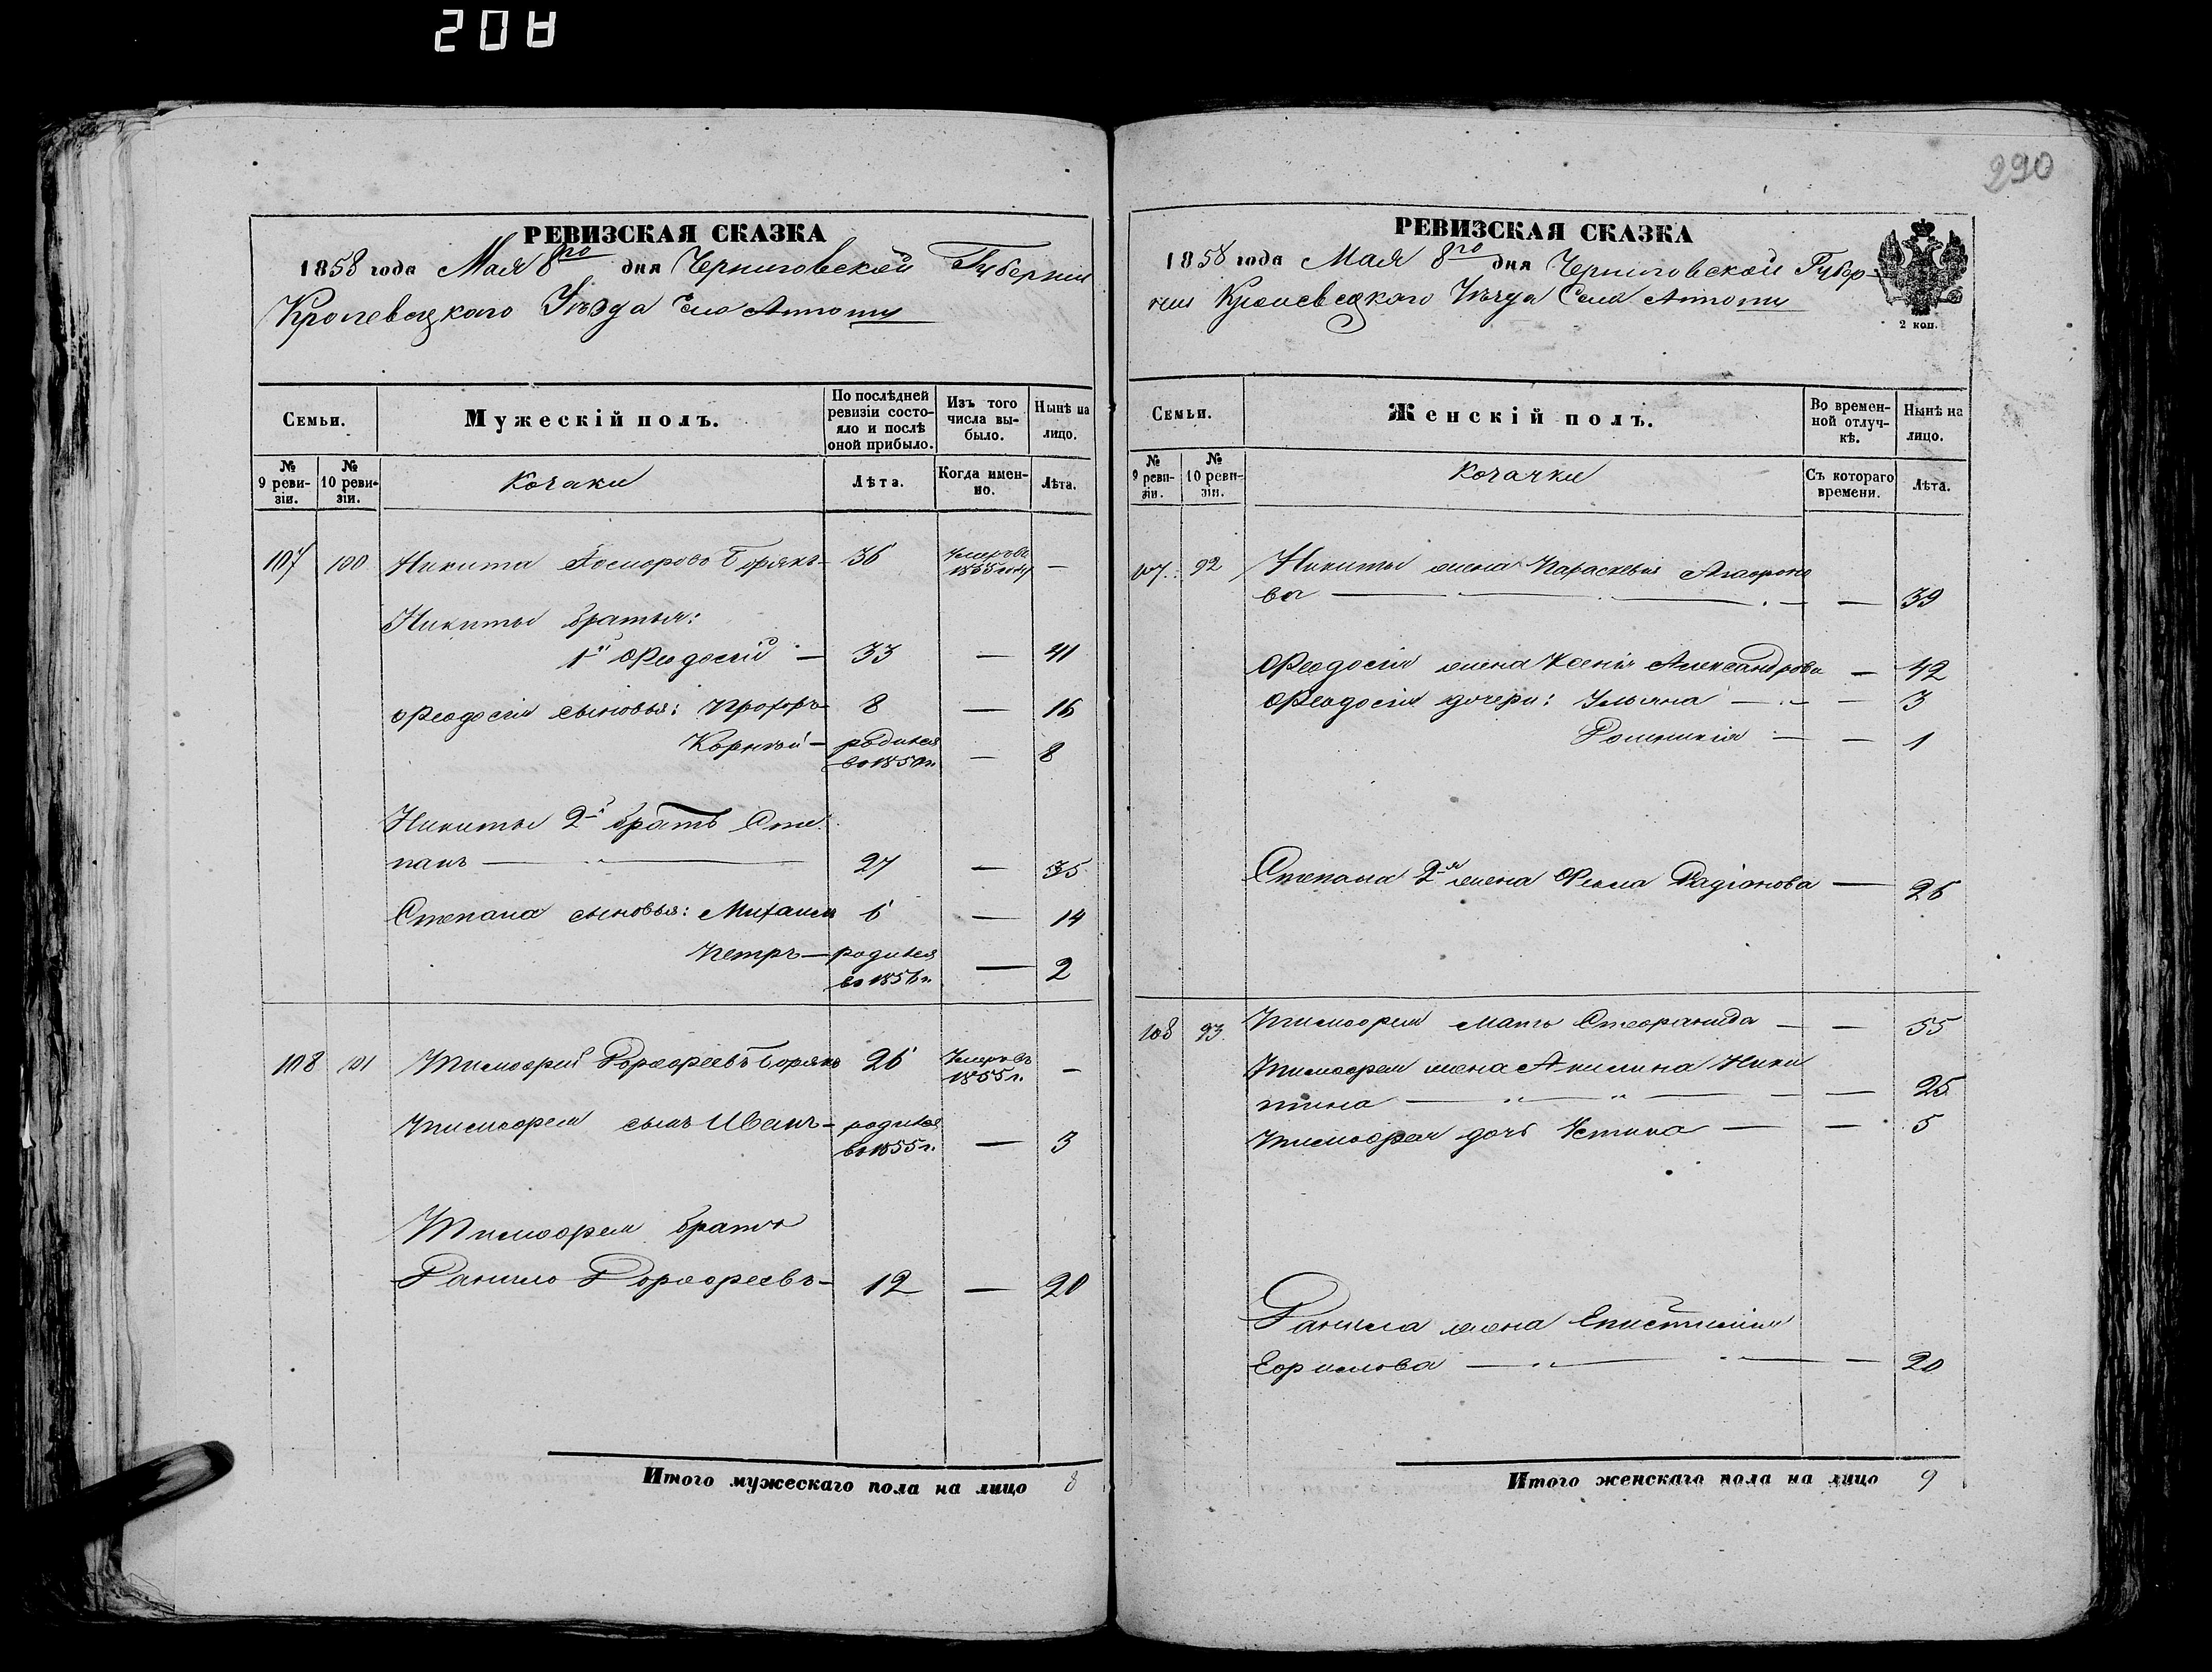 208
290
РЕВИЗСКАЯ СКАЗКА
1858 года Мая 8го дня Черниговской Губернии
Кролевецкого Уѣзда Село
Семьи.
Мужескій полъ.
По послѣдней ревизіи состояло и послѣ оной прибыло.
Изъ того числа выбыло.
Нынѣ на лицо.
№ 9 ревизіи.
№ 10 ревизіи.
Козаки
Лѣта.
Когда именно.
Лѣта.
107 100 Никита Борякъ 36 Умеръ въ 1855 году —
Никиты братья:
1й Феодосій — 33 — 41
Феодосія сыновья: Прохоръ 8 — 16
Корнѣй — родился въ 1850 г. — 8
Никиты 2й братъ Сте-
панъ — 27 — 35
Степана сыновья: Михаилъ 6 — 14
Петръ — родился въ 1856 г. — 2
108 101 Тимофей Дорофеевъ Борякъ 26 Умеръ въ 1855 г. —
Тимофея сынъ Иванъ — родился въ 1855 г. — 3
Тимофея братъ
Данило Дорофеевъ — 12 — 20
Итого мужескаго пола на лицо 8
РЕВИЗСКАЯ СКАЗКА
1858 года Мая 8го дня Черниговской Губер-
ніи Кролевецкаго Уѣзда Села
2 коп.
Семьи.
Женскій полъ.
Во временной отлучкѣ.
Нынѣ на лицо.
№ 9 ревизіи.
№ 10 ревизіи.
Козачки
Съ котораго времени.
Лѣта.
107. 92 Никиты жена Параскевія Агафоно
ва — — 39
Феодосія жена Ксенія Александрова — 42
Феодосія дочери: Ульяна — — 3
Домникія — — 1
Степана 2я жена Фекла Радіонова — 26
108 93. Тимофея мать Стефанида — — 55
Тимофея жена Акилина Ники
тина — — 25
Тимофея дочь Устина — — 5
Данила жена Епистимія
Ефимова — — 20
Итого женскаго пола на лицо 9